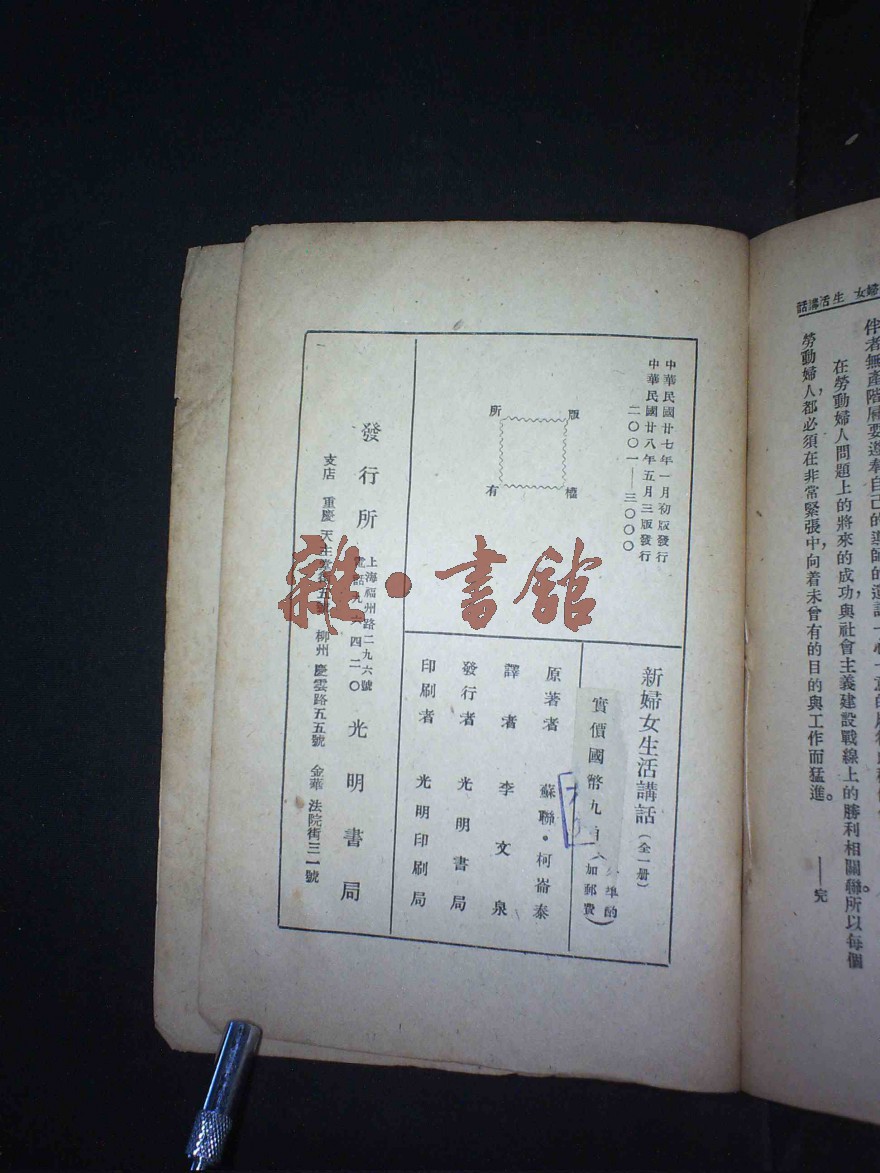 婦女生活講話
伴者無產階層要遵奉自己的導師的遺訓一心一意的
在勞動婦人問題上的將來的成功與社會主義建設戰線上的勝利相關聯。所以每個
勞動婦人,都必須在非常緊張中,向着未曾有的目的與工作而猛進。
——完
中華民國廿七年一月初版發行
中華民國廿八年五月三版發行
二〇〇一—三〇〇〇
版權所有
新婦女生活講話(全一册)
實價國幣九
準酌
加郵費)
原著者 蘇聯·柯崙泰
譯者 李文泉
發行者 光明書局
印刷者 光明印刷局
發行所
上海福州路二九六號
電話九六四二〇
光明書局
支店 重慶 天主堂街五號 柳州 慶雲路五五號 金華 法院街三一號
雜·書舘